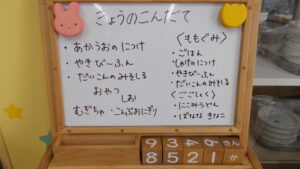 きょうのこんだて
・あかうおの につけ
・やきびーふん
・だいこんのみそしる
おやつ
しお
むぎちゃ・こんぶおにぎり
〈ももぐみ〉
・ごはん
・しゃけのにつけ
・やきびーふん
・だいこんのみそしる
〈ごごしょく〉
・にこみうどん
・ばなな きなこ
9 3 4 6 きん
8 5 2 1 か